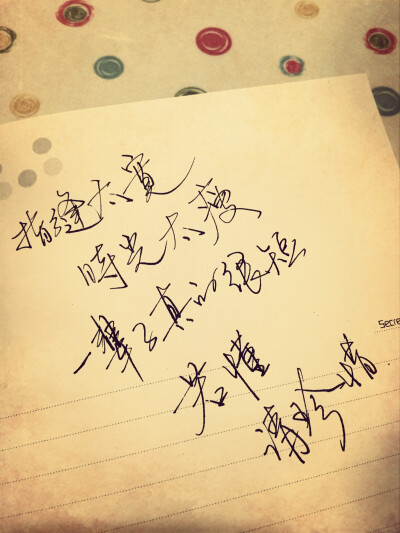 指缝太宽
時光太瘦
一辈子真的很短
若懂
请珍惜
Secre